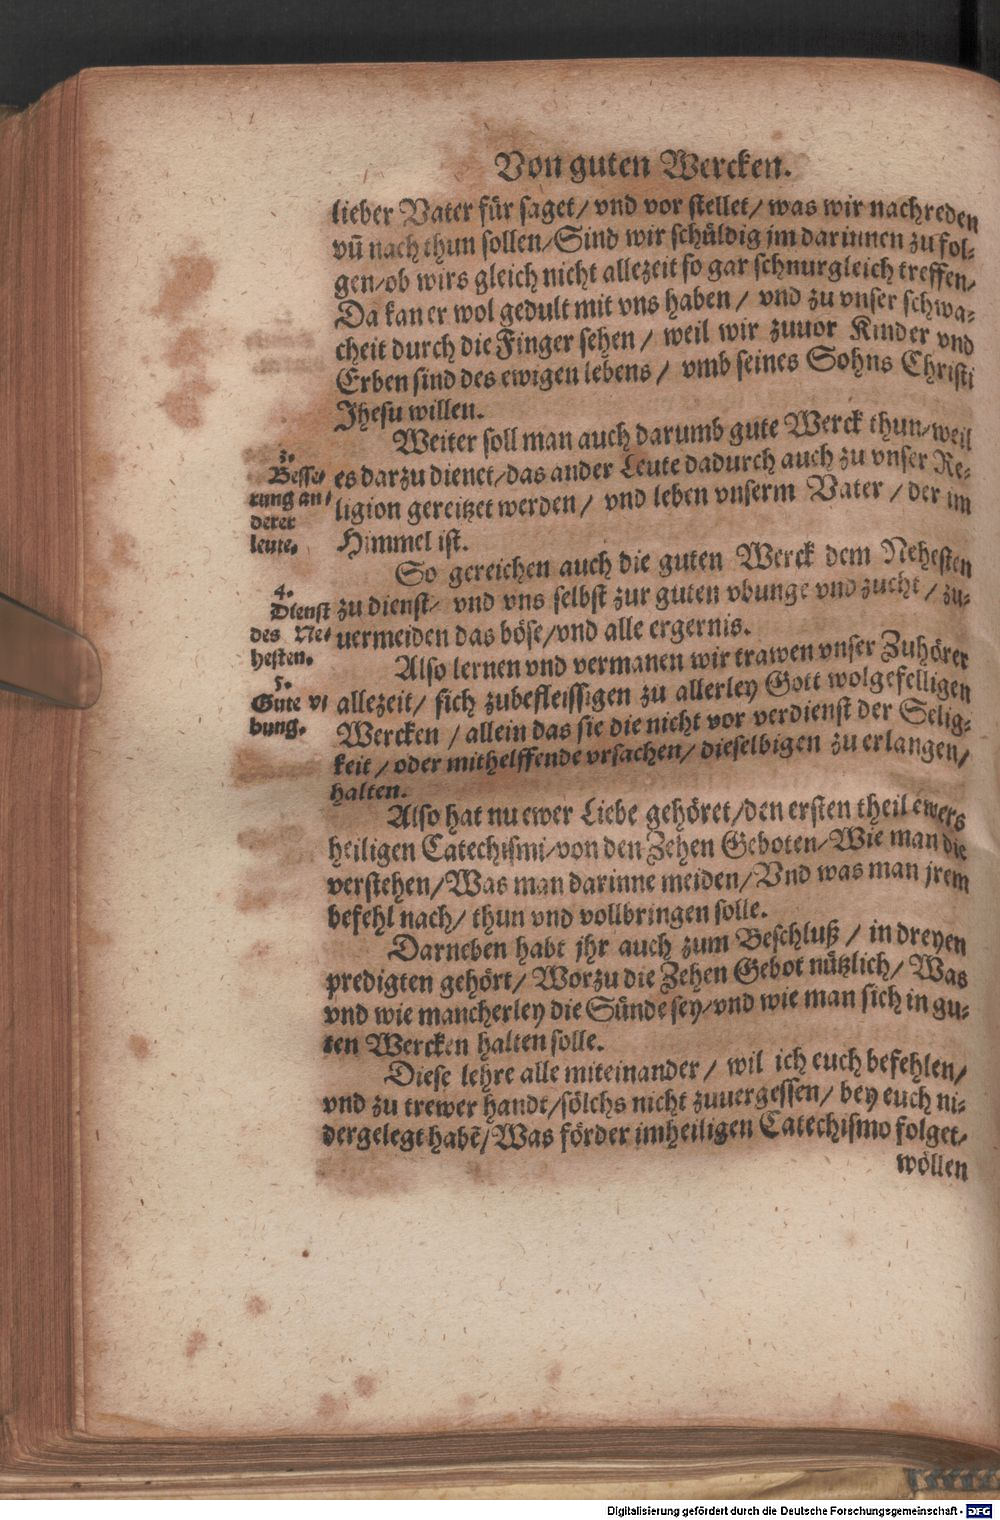 Von guten Wercken.
lieber Vater für saget/ vnd vor stellet/ was wir nachreden
vñ nach thun sollen/Sind wir schüldig jm darinnen zu fol-
gen/ob wirs gleich nicht allezeit so gar schnurgleich treffen/
Da kan er wol gedult mit vns haben/ vnd zu vnser schwa-
cheit durch die Finger sehen/ weil wir zuuor Kinder vnd
Erben sind des ewigen lebens/ vmb seines Sohns Christi
Jhesu willen.
Weiter soll man auch darumb gute Werck thun/weil
es darzu dienet/das ander Leute dadurch auch zu vnser Re-
ligion gereitzet werden/ vnd leben vnserm Vater/ der im
Himmel ist.
3.
Besse-
rung an-
derer
leute.
So gereichen auch die guten Werck dem Nehesten
zu dienst/ vnd vns selbst zur guten vbunge vnd zucht/ zu-
uermeiden das böse/vnd alle ergernis.
4.
Dienst
des Ne-
hesten.
Also lernen vnd vermanen wir trawen vnser Zuhörer
allezeit/ sich zubefleissigen zu allerley Gott wolgefelligen
Wercken/ allein das sie die nicht vor verdienst der Selig-
keit/ oder mithelffende vrsachen/ dieselbigen zu erlangen/
halten.
5.
Gute v-
bung.
Also hat nu ewer Liebe gehöret/den ersten theil ewers
heiligen Catechismi/von den Zehen Geboten/Wie man die
verstehen/Was man darinne meiden/Vnd was man jrem
befehl nach/ thun vnd vollbringen solle.
Darneben habt jhr auch zum Beschluß/ in dreyen
predigten gehört/ Worzu die Zehen Gebot nützlich/ Was
vnd wie mancherley die Sünde sey/vnd wie man sich in gu-
ten Wercken halten solle.
Diese lehre alle miteinander/ wil ich euch befehlen/
vnd zu trewer handt/sölchs nicht zuuergessen/ bey euch ni-
dergelegt habē/Was förder im heiligen Catechismo folget/
wöllen
Digitalisierung gefördert durch die Deutsche Forschungsgemeinschaft - DFG